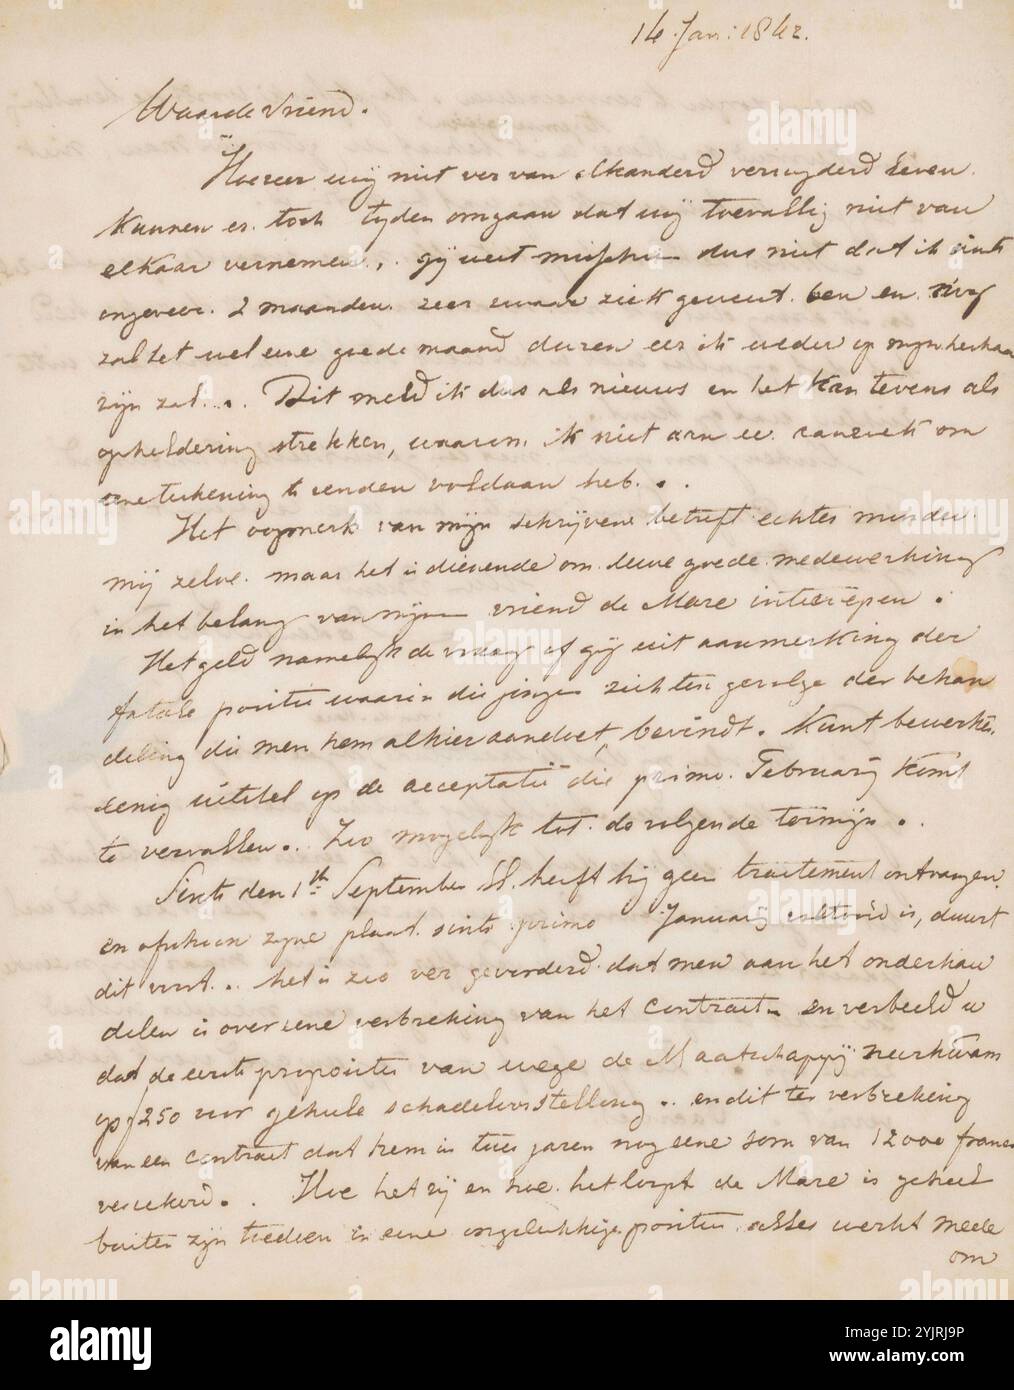 14 Jan: 1842.
Waarde Vriend.
Hoezeer wij niet ver van elkanderd verwyderd leven
kunnen er toch tyden omgaan dat wij toevallig niet van
elkaar vernemen. . gij weet misschien dus niet dat ik sints
ongeveer 2 maanden zeer zwaar ziek geweest ben en nog
zal het wel eene goede maand duren eer ik weder op mijn
zijn zal. . . Dit meld ik dus als nieuws en het kan tevens als
opheldering strekken, waarom ik niet aan uw aanzoek om
eene tekening te zenden voldaan heb. . .
Het oogmerk van mijn schrijven betreft echter minder
mij zelve. maar het is dienende om uwe goede medewerking
in het belang van mijn vriend de Mare interoepen.
Het geld namelijk de vraag of gij uit aanmerking der
fatale positie waarin die jongen zich ten gevolge der behan
deling die men hem alhier aandoet, bevindt. Kunt bewerken
eenig uitstel op de acceptatie die primo Februarij komt
te vervallen. . Zoo mogelijk tot de volgende termijn. .
Sints den 1sten September ll. heeft hij geen traitement ontvangen.
en ofschoon zyne plaat sints primo Januarij voltooid is, duurt
dit voort. . het is zoo ver gevorderd dat men aan het onderhan
delen is over eene verbreking van het contract en verbeeld u
dat de eerste propositie van wege de Maatschappij neerkwam
op f250 voor geheele schadeloosstelling. . en dit ter verbreking
van een contract dat hem in twee jaren nog eene som van 12000 francs
verzekerd. . Hoe het zij en hoe het loopt de Mare is geheel
buiten zijn toedoen in eene ongelukkige positie alles werkt mede
om
alamy
Image ID: 2YJRJ9P
www.alamy.com